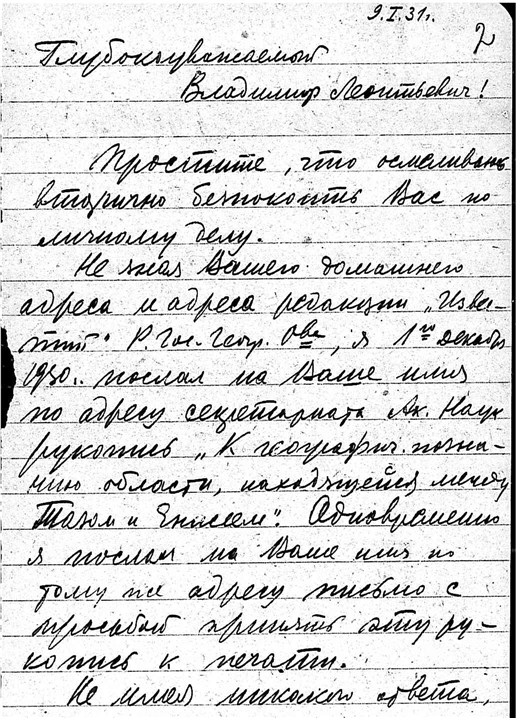 9.I.31г.
2
Глубокоуважаемый
Владимир Леонтьевич!
Простите, что осмеливаюсь
вторично безпокоить Вас по
личному делу.
Не зная Вашего домашнего
адреса и адреса редакции „Изве-
стий" Р. Гос. Геогр. О-ва, я 1го декабр
1930г. послал на Ваше имя
по адресу секретариата Ак. Наук
рукопись „К географич. позна-
нию области, находящейся между
Тазом и Енисеем". Одновременно
я послал на Ваше имя по
тому же адресу письмо с
просьбой принять эту ру-
копись к печати.
Не имея никакого ответа,